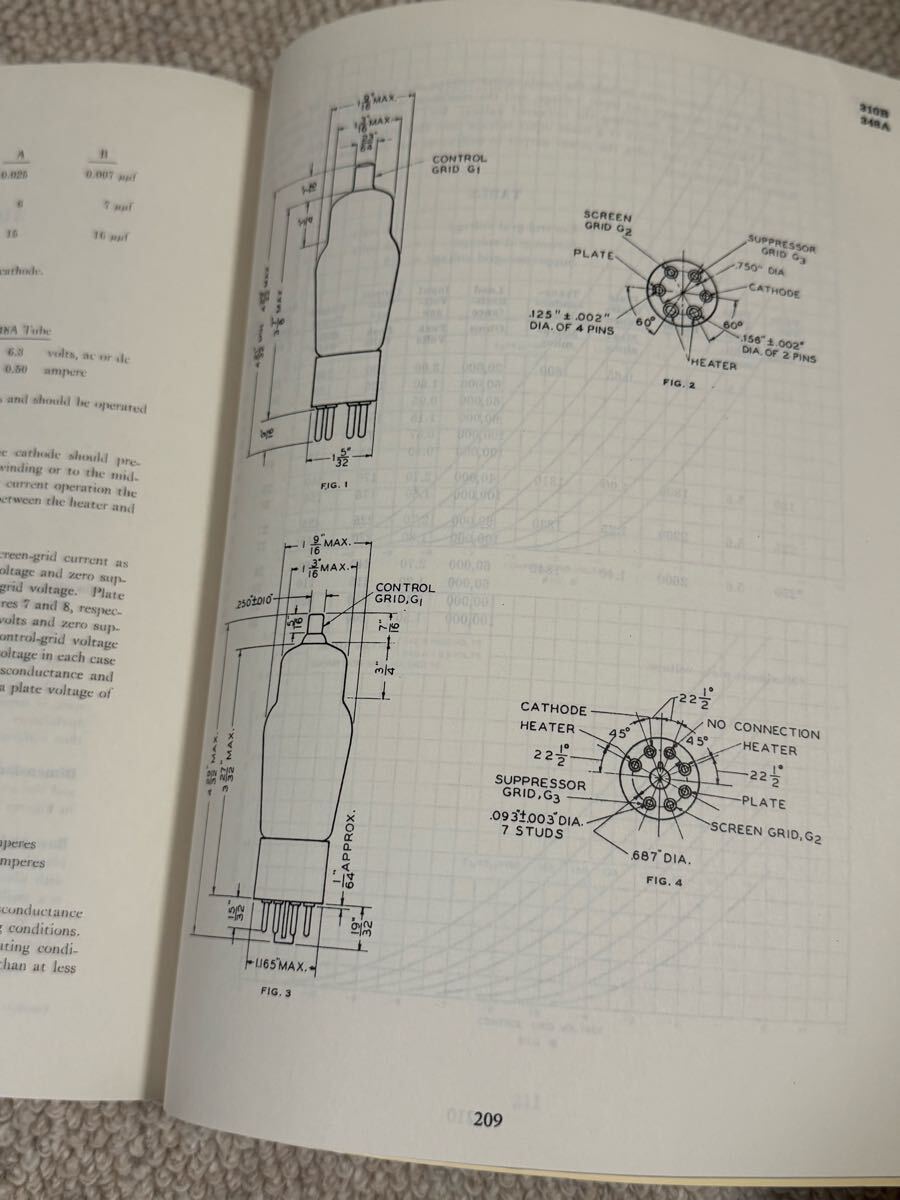 A B
0.025 0.007 μμf
6 7 μμf
15 16 μμf
cathode.
48A Tube
6.3 volts, ac or dc
0.50 ampere
and should be operated
cathode should pre-
winding or to the mid-
current operation the
between the heater and
screen-grid current as
voltage and zero sup-
grid voltage. Plate
res 7 and 8, respec-
volts and zero sup-
control-grid voltage
voltage in each case
sconductance and
a plate voltage of
mperes
mperes
conductance
conditions.
ating condi-
than at less
310B
348A
1 9/16" MAX.
1 3/16" MAX
CONTROL
GRID G1
1 5/32"
FIG. 1
SCREEN
GRID G2
SUPPRESSOR
GRID G3
PLATE
.750" DIA
CATHODE
.125" ± .002"
DIA. OF 4 PINS
60°
60°
.156" ± .002"
DIA. OF 2 PINS
HEATER
FIG. 2
1 9/16" MAX.
1 3/16" MAX.
.250"±.010"
CONTROL
GRID, G1
5/16"
7/16"
3/4"
3 27/32" MAX.
1/64" APPROX.
15/32"
19/32"
1.165" MAX.
FIG. 3
22 1/2°
CATHODE
NO CONNECTION
HEATER
45°
45°
HEATER
22 1/2°
22 1/2°
SUPPRESSOR
GRID, G3
PLATE
.093"±.003" DIA.
7 STUDS
SCREEN GRID, G2
.687" DIA.
FIG. 4
209